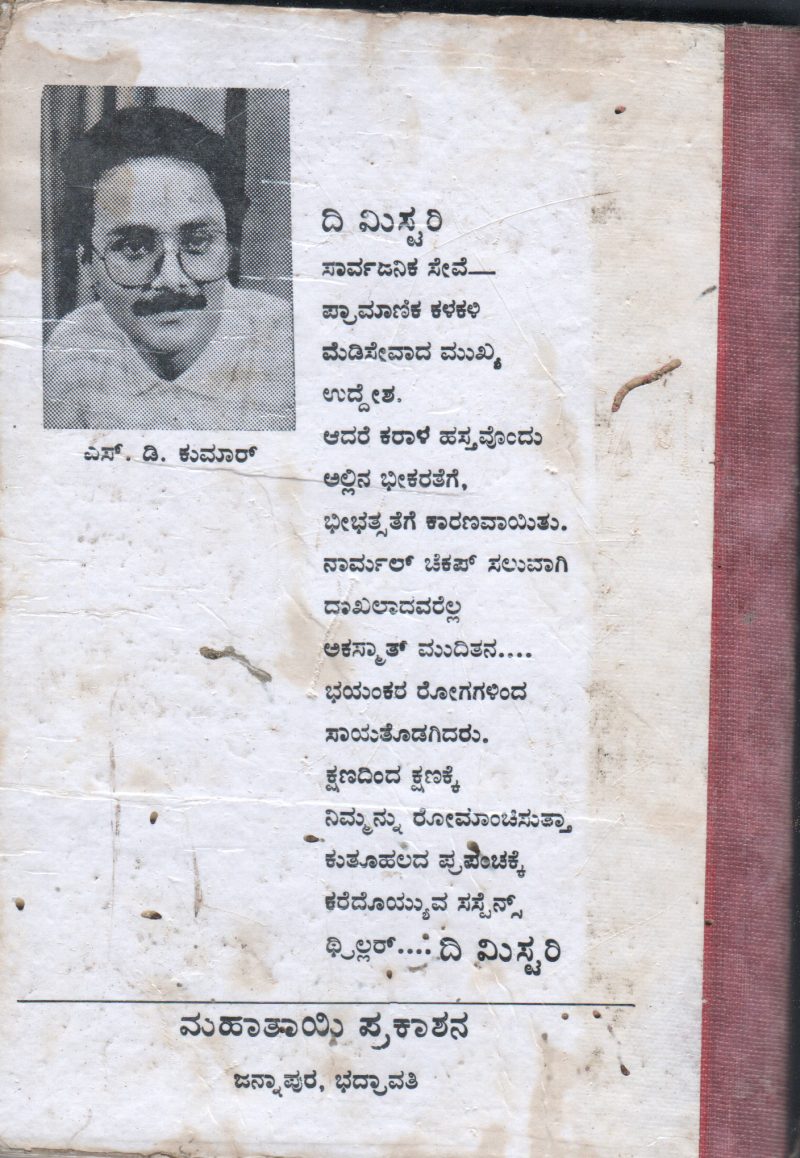 ಎಸ್. ಡಿ. ಕುಮಾರ್
ದಿ ಮಿಸ್ಟರಿ
ಸಾರ್ವಜನಿಕ ಸೇವೆ—
ಪ್ರಾಮಾಣಿಕ ಕಳಕಳಿ
ಮೆಡಿಸೇವಾದ ಮುಖ್ಯ
ಉದ್ದೇಶ.
ಆದರೆ ಕರಾಳ ಹಸ್ತವೊಂದು
ಅಲ್ಲಿನ ಭೀಕರತೆಗೆ,
ಭೀಭತ್ಸತೆಗೆ ಕಾರಣವಾಯಿತು.
ನಾರ್ಮಲ್ ಚೆಕಪ್ ಸಲುವಾಗಿ
ದಾಖಲಾದವರೆಲ್ಲ
ಅಕಸ್ಮಾತ್ ಮುದಿತನ....
ಭಯಂಕರ ರೋಗಗಳಿಂದ
ಸಾಯತೊಡಗಿದರು.
ಕ್ಷಣದಿಂದ ಕ್ಷಣಕ್ಕೆ
ನಿಮ್ಮನ್ನು ರೋಮಾಂಚಿಸುತ್ತಾ
ಕುತೂಹಲದ ಪ್ರಪಂಚಕ್ಕೆ
ಕರೆದೊಯ್ಯುವ ಸಸ್ಪೆನ್ಸ್
ಥ್ರಿಲ್ಲರ್.... ದಿ ಮಿಸ್ಟರಿ
ಮಹಾತಾಯಿ ಪ್ರಕಾಶನ
ಜನ್ನಾಪುರ, ಭದ್ರಾವತಿ